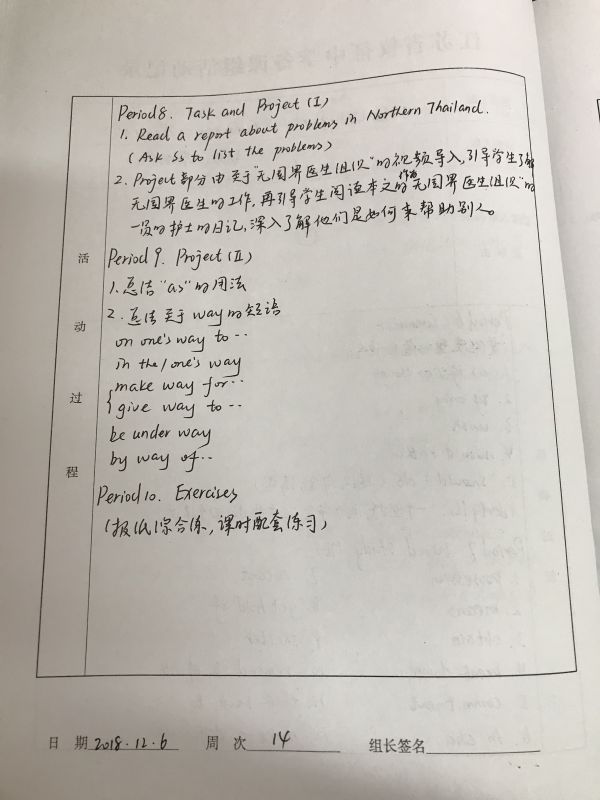 Period 8. Task and Project (I)
1. Read a report about problems in Northern Thailand.
(Ask Ss to list the problems)
2. Project部分由关于"无国界医生组织"的视频导入,引导学生了解
无国界医生的工作,再引导学生阅读本文的作为"无国界医生组织"的
一员的护士的日记,深入了解他们是如何来帮助别人。
活动过程
Period 9. Project (II)
1. 总结"as"的用法
2. 总结关于way的短语
on one's way to…
in the/one's way
make way for…
give way to…
be under way
by way of…
Period 10. Exercises
(报纸综合练,课时配套练习)
日 期 2018.12.6 周 次 14 组长签名